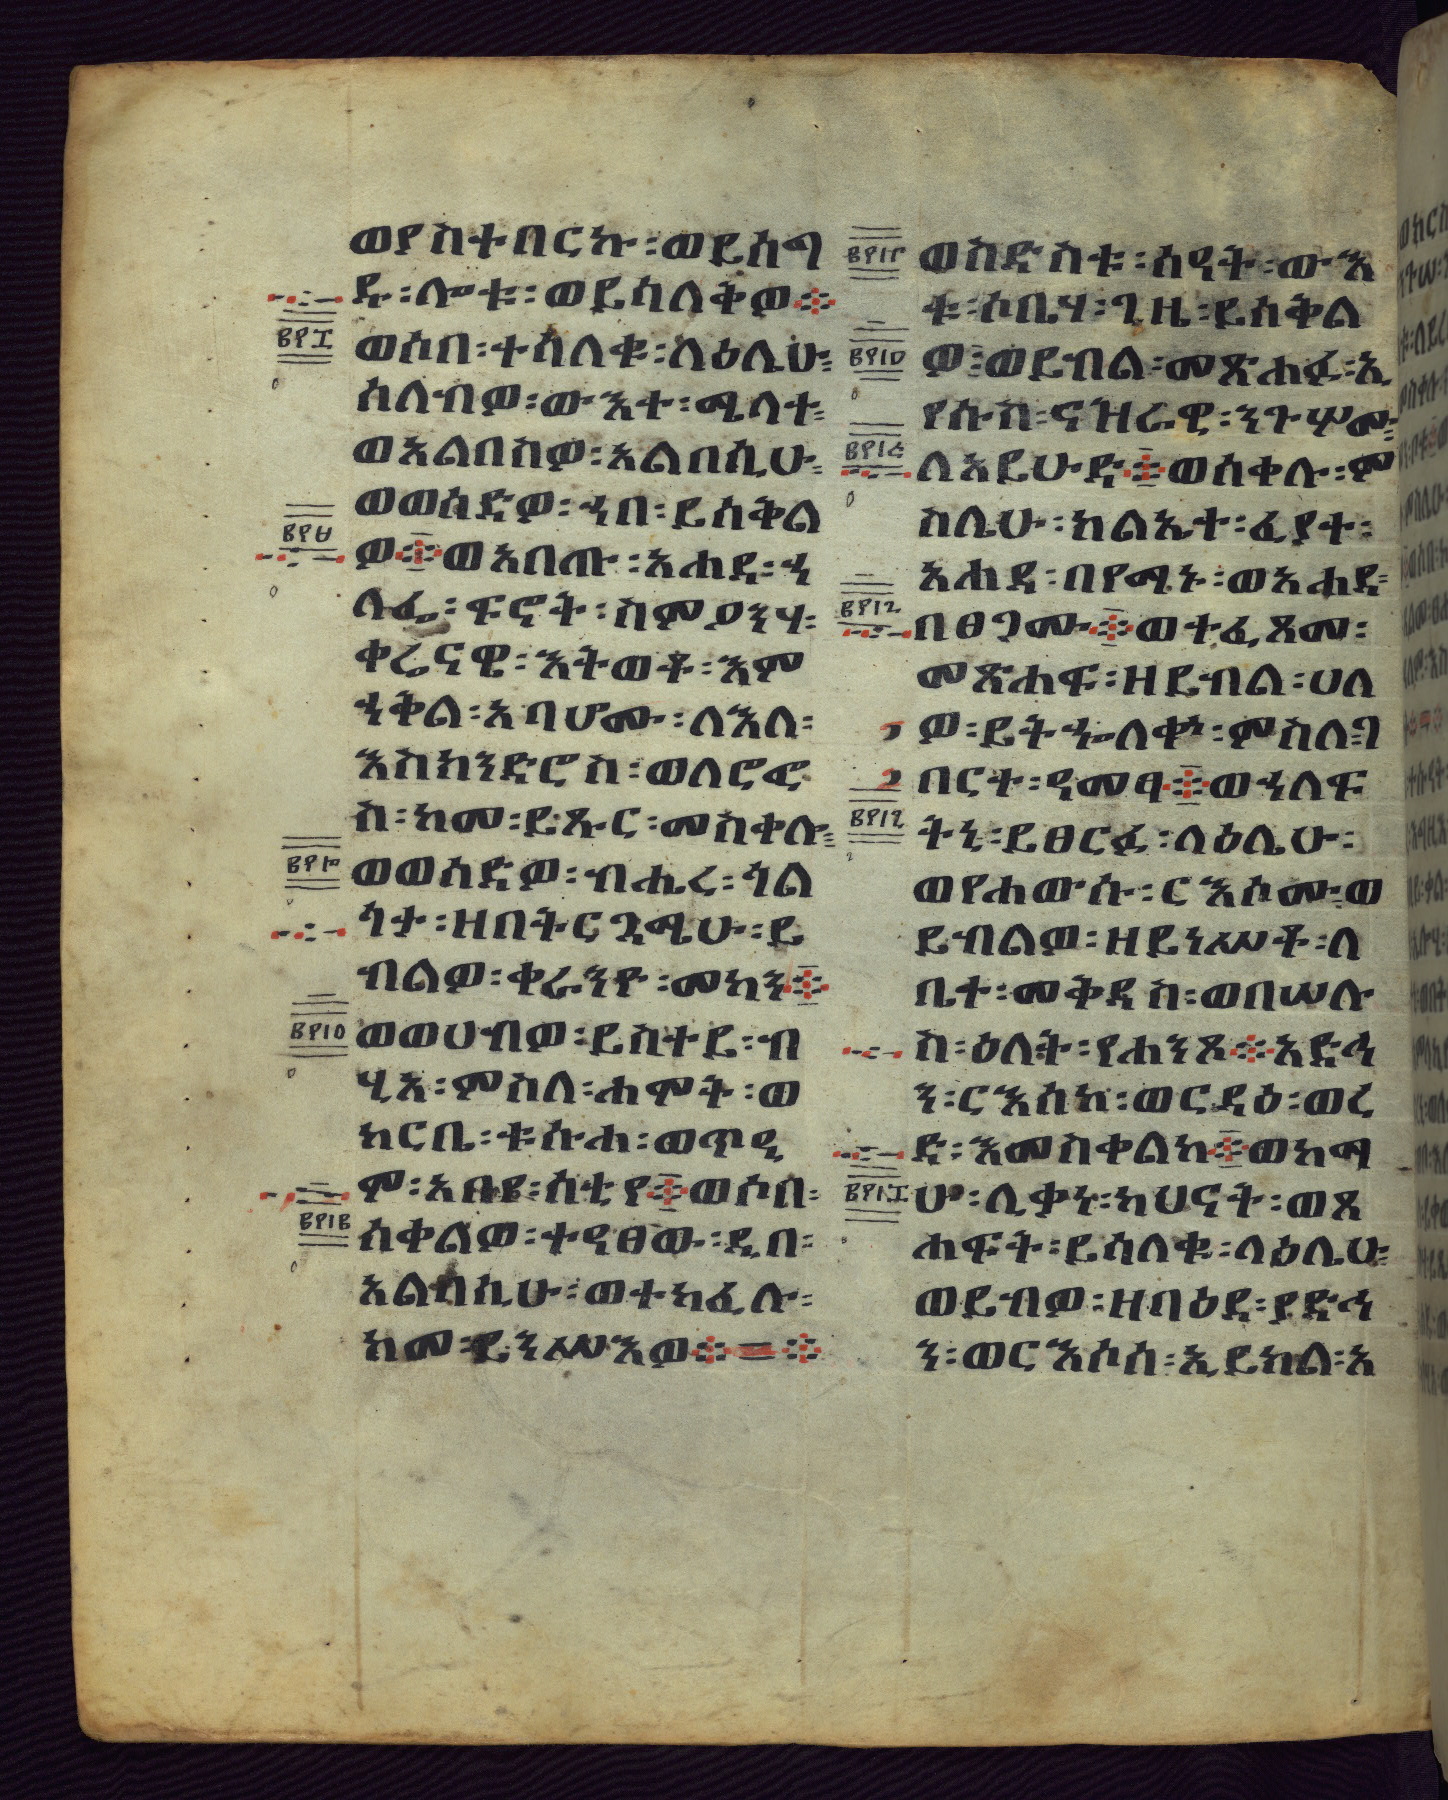 ወያስተበርኩ፡ወይሰግ
ዱ፡ሎቱ፡ወይሳለቅዎ፨
ወሶበ፡ተሳለቁ፡ላዕሌሁ፡
ሰለብዎ፡ውእተ፡ሜላተ፡
ወአልበስዎ፡አልባሲሁ፡
ወወሰድዎ፡ኀበ፡ይሰቅል
ዎ፨ወአበጡ፡አሐደ፡ኀ
ላፌ፡ፍኖት፡ስምዖንሃ፡
ቀሬናዌ፡እትወቶ፡እም
ኀቅል፡አባሆሙ፡ለእለ፡
እስክንድሮስ፡ወለሮፎ
ስ፡ከመ፡ይጹር፡መስቀሉ፡
ወወሰድዎ፡ብሔረ፡ጎል
ጎታ፡ዘበትርጓሜሁ፡ይ
ብልዎ፡ቀራንዮ፡መካን፨
ወወሀብዎ፡ይስተይ፡ብ
ሂአ፡ምስለ፡ሐሞት፡ወ
ከርቤ፡ቱሱሐ፡ወጥዒ
ሞ፡አበየ፡ሰቲየ፨ወሶበ፡
ሰቀልዎ፡ተዓፀው፡ዲበ፡
አልባሲሁ፡ወተካፈሉ፡
ከመ፡ይንሥእዎ፨=፨
ወስድስቱ፡ሰዓት፡ውእ
ቱ፡ሶቤሃ፡ጊዜ፡ይሰቅል
ዎ፡ወይብል፡መጽሐፉ፡ኢ
የሱስ፡ናዝራዊ፡ንጉሦሙ፡
ለአይሁድ፨ወሰቀሉ፡ም
ስሌሁ፡ክልኤተ፡ፈያተ፡
አሐደ፡በየማኑ፡ወአሐደ፡
በፀጋሙ፨ወተፈጸመ፡
መጽሐፍ፡ዘይብል፡ሀለ
ዎ፡ይትኈለቍ፡ምስለ፡ገ
በርተ፡ዓመፃ፨ወኀለፍ
ትኒ፡ይፀርፉ፡ላዕሌሁ፡
ወየሐውሱ፡ርእሶሙ፡ወ
ይብልዎ፡ዘይነሥቶ፡ለ
ቤተ፡መቅደስ፡ወበሠሉ
ስ፡ዕለት፡የሐንጾ፨አድኅ
ን፡ርእሰከ፡ወርዳዕ፡ወረ
ድ፡እመስቀልከ፨ወከማ
ሁ፡ሊቃነ፡ካህናት፡ወጸ
ሐፍት፡ይሳለቁ፡ላዕሌሁ፡
ወይብዎ፡ዘባዕደ፡ያድኅ
ን፡ወርእሶሰ፡ኢይክል፡አ